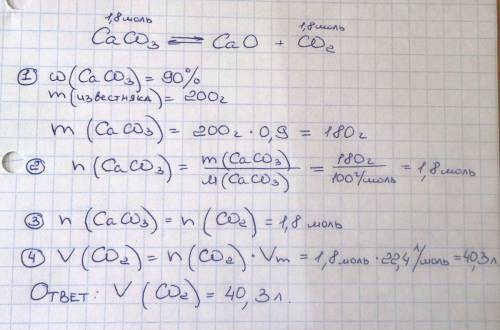 1,8 моль 1,8 моль
CaCO₃ ⇌ CaO + CO₂
① ω(CaCO₃) = 90%
m(известняка) = 200г
m(CaCO₃) = 200г · 0,9 = 180г
② n(CaCO₃) = m(CaCO₃)/M(CaCO₃) = 180г/100г/моль = 1,8 моль
③ n(CaCO₃) = n(CO₂) = 1,8 моль
④ V(CO₂) = n(CO₂) · Vm = 1,8 моль · 22,4 л/моль = 40,3 л
Ответ: V(CO₂) = 40,3 л.